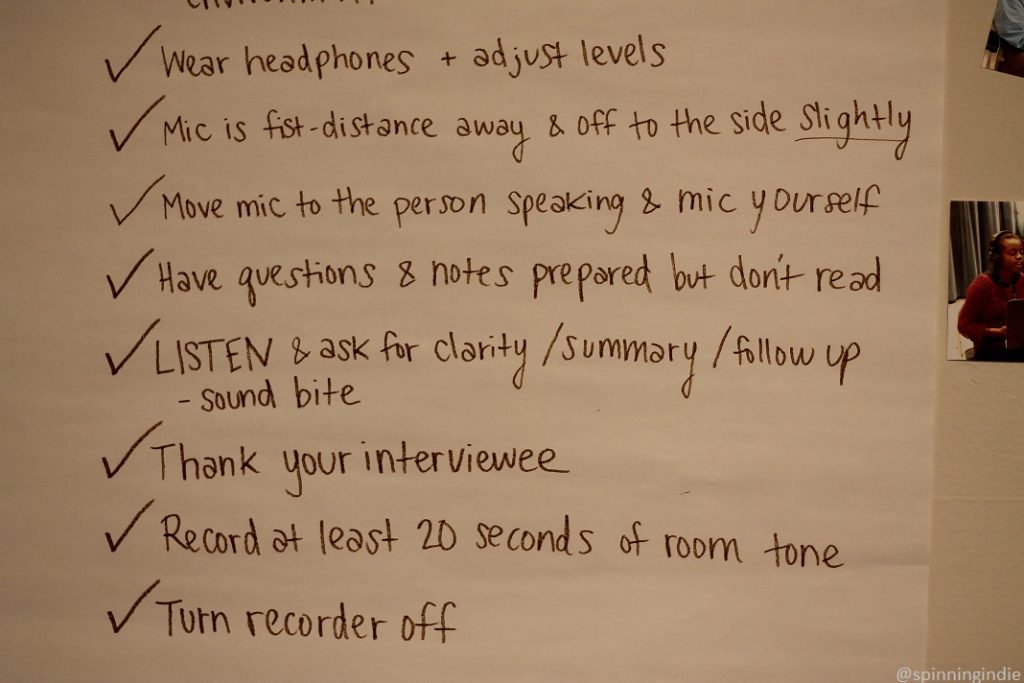 ✓ Wear headphones + adjust levels
✓ Mic is fist-distance away & off to the side slightly
✓ Move mic to the person speaking & mic yourself
✓ Have questions & notes prepared but don't read
✓ LISTEN & ask for clarity /summary /follow up
- sound bite
✓ Thank your interviewee
✓ Record at least 20 seconds of room tone
✓ Turn recorder off
@spinningindie